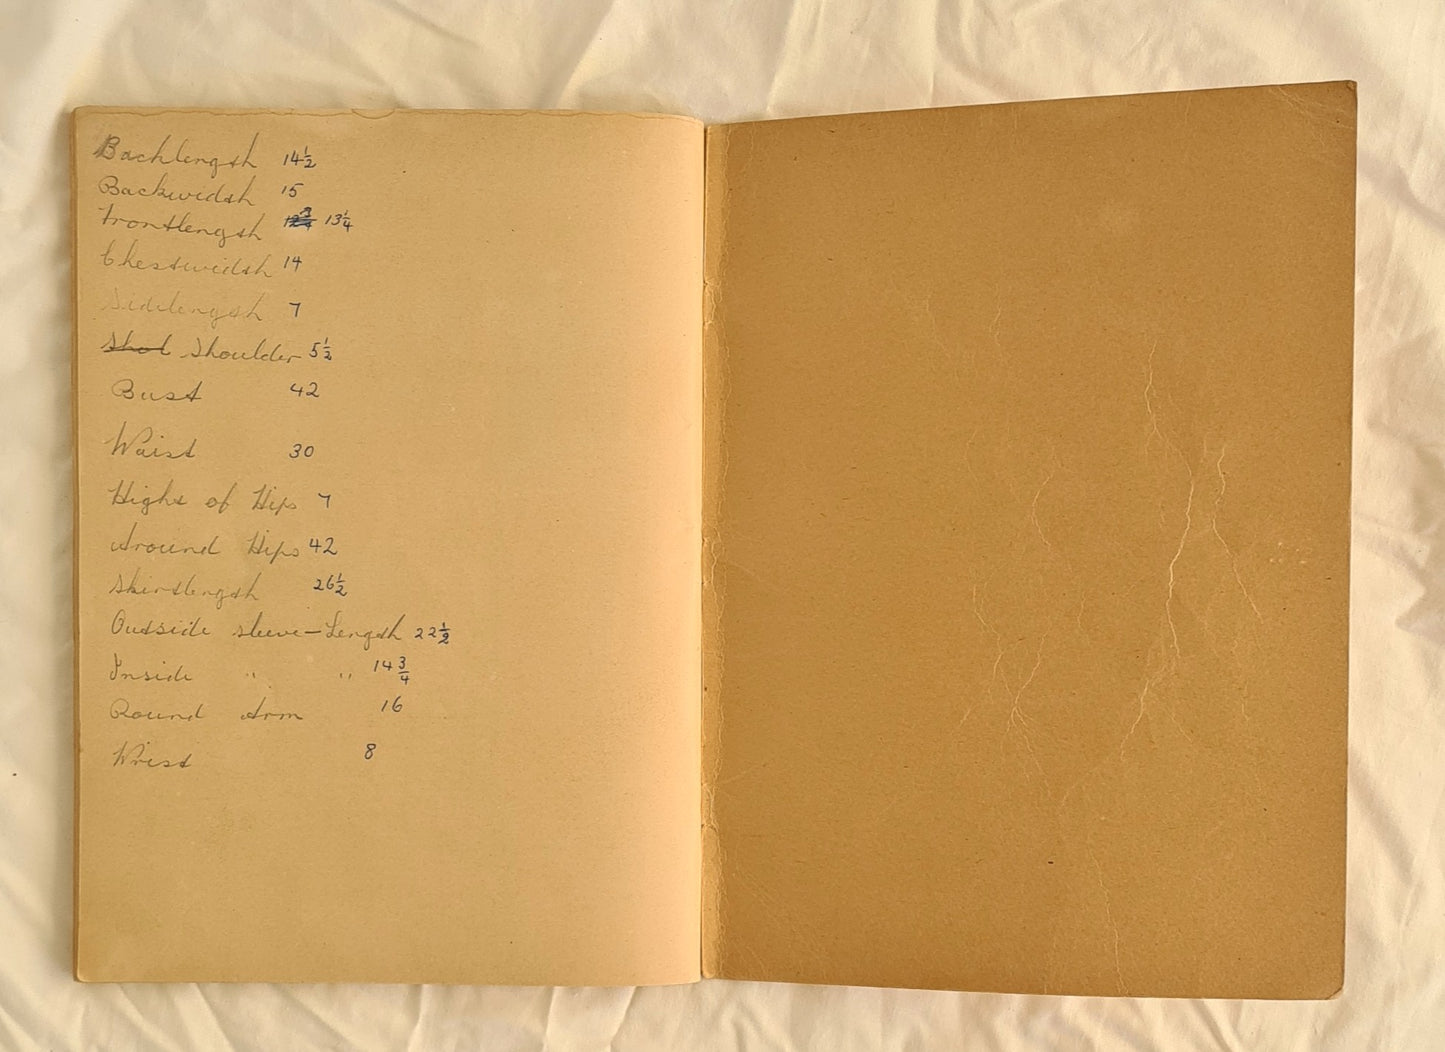 Backlength 14½
Backwidth 15
Frontlength 13¼
Chestwidth 14
Sidelength 7
Shol Shoulder 5½
Bust 42
Waist 30
Hight of Hips 7
Around Hips 42
Skirtlength 26½
Outside sleeve-Length 22½
Inside " " 14¾
Round Arm 16
Wrist 8